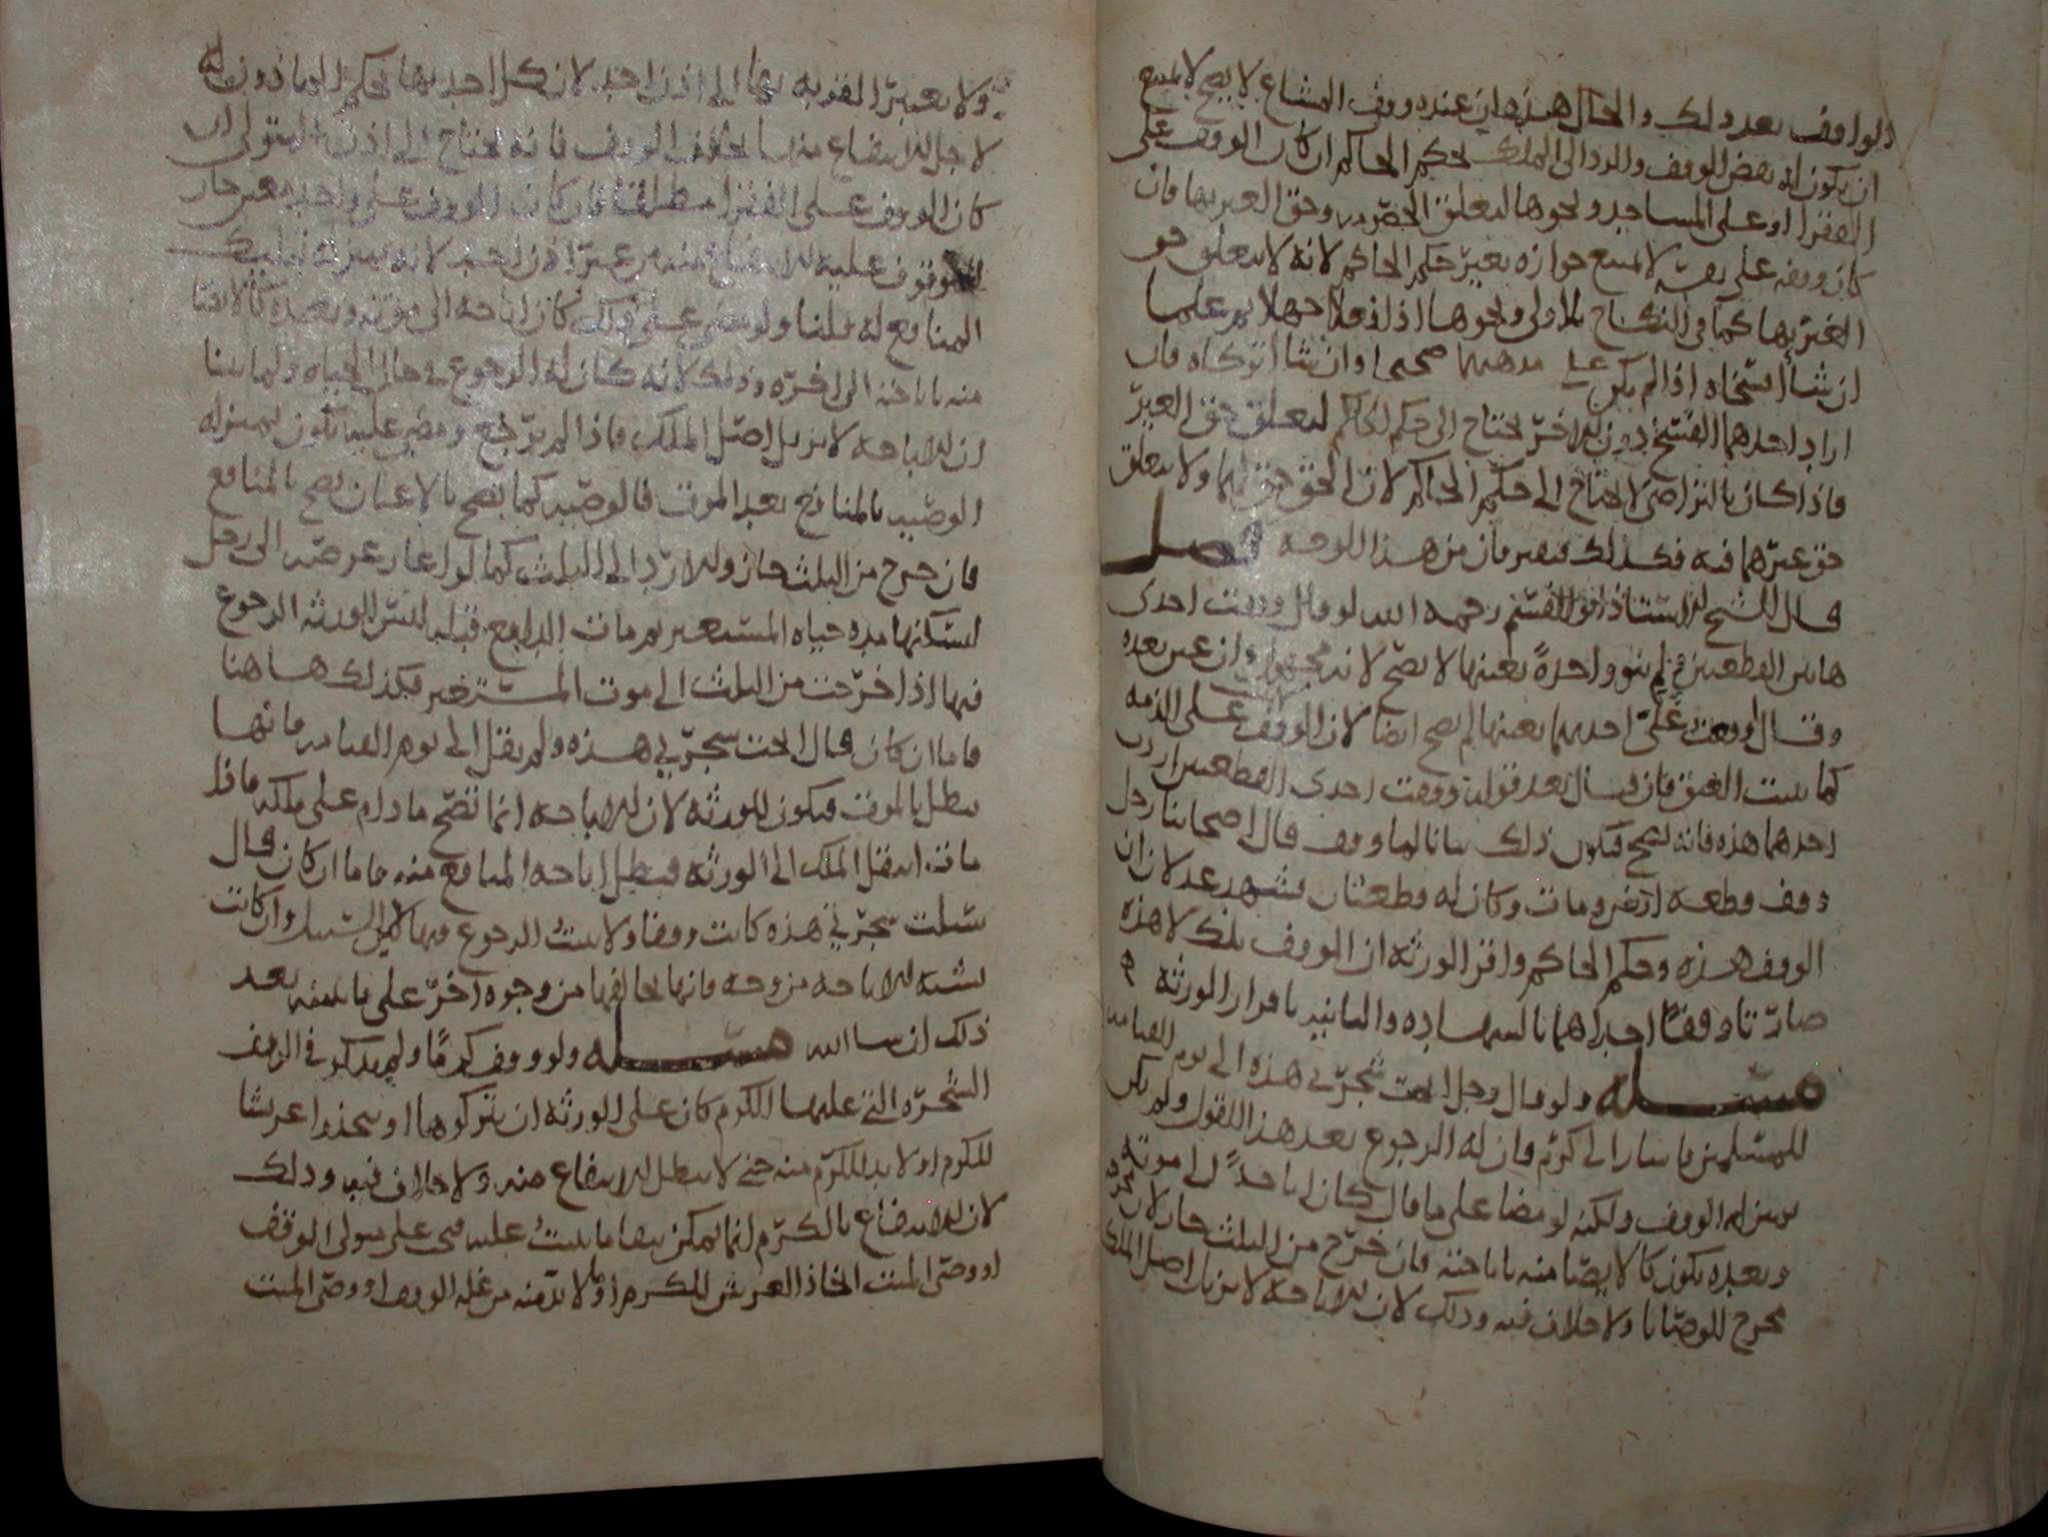 الواقف بعد ذلك والحال هذه ان عنده وقف المشاع لا يصح لا يمنع
ان يكون له نقض الوقف والرد الى الملك بحكم الحاكم ان كان الوقف على
الفقرا او على المساجد ونحوها لتعلق وحق الغير بها وان
كان وقفه على نفسه لا يمنع جوازه بغير حكم الحاكم لانه لا يتعلق حق
الغير بها كما في النكاح بلا ولي ونحوها اذا فعلا جهلا ثم علما
ان شا فسخاه اذا لم يكن على مذهبهما صحيحا وان شا اتركاه فان
اراد احدهما الفسخ دون الاخر يحتاج الى حكم الحاكم لتعلق حق الغير
فاذا كان بالتراضي لا يحتاج الى حكم الحاكم لان الحق حق لهما ولا يتعلق
حق غيرهما فيه فكذلك من هذا الوجه فصل
قال الشيخ الاستاذ ابو القسم رحمه الله لو قال وقفت احدى
هاتين القطعتين ولم ينو واحدة بعينها لا يصح لانه مجهول وان عين بعده
وقال وقفت على احديهما بعينها لم يصح ايضا لان الوقف على الذمه
كما يثبت العتق فان قال بعد قوله وقفت احدى القطعتين اردت
احدهما هذه فانه يصح فيكون ذلك بيانا لما وقف قال اصحابنا رجل
وقف قطعه ارض ومات وكان له قطعتان فشهد عدلان ان
الوقف هذه وحكم الحاكم واقر الورثه ان الوقف تلك لا هذه
صارتا وقفا احداهما بالشهاده والثانيه باقرار الورثه
مسئله ولو قال رجل ابحت شجرتي هذه الى يوم القيامه
للمسلمين فان له الرجوع بعد هذا القول ولم يكن
بمنزله الوقف ولكنه لو مضا على ما قال كان اباحة الى موته
وبعده يكون كالايصا منه باباحته فان خرج من الثلث جاز لانه
مخرج الوصايا ولا خلاف فيه وذلك لان الاباحه لا تزيل اصل الملك
ولا يعتبر القربه بها الى اذن احد لان كل احد بها بحكم الماذون له
لاجل الانتفاع منها بخلاف الوقف فانه يحتاج الى اذن المتولى ان
كان الوقف على الفقرا مطلقا فان كان الوقف على واحد معين جاز
للموقوف عليه الانتفاع منه من غير اذن احد لانه بمنزله تمليك
المنافع له قلنا ولو مضى على ذلك كان اباحه الى موته وبعده كالايصا
منه باباحته الى اخره وذلك لانه كان له الرجوع في حال الحياه ولما بينا
ان الاباحه لا تزيل اصل الملك فاذا لم يرجع ومضى عليه يكون بمنزله
الوصيه بالمنافع بعد الموت فالوصيه كما تصح بالاعيان تصح بالمنافع
فان خرج من الثلث جاز والا رد الى الثلث كما لو اعار عرصته الى رجل
ليسكنها مده حياه المستعير ثم مات الدافع قبله ليس للورثه الرجوع
فيها اذا خرجت من الثلث الى موت المستعير فكذلك هاهنا
فاما ان كان قال ابحت شجرتي هذه ولم يقل الى يوم القيامه فانها
تبطل بالموت فيكون للورثه لان الاباحه انما تصح ما دام على ملكه فاذا
مات انتقل الملك الى الورثه فيبطل اباحه المنافع منه فاما ان كان قال
سبلت شجرتي هذه كانت وقفا ولا يثبت الرجوع فيها لان السبيل وان كانت
تشبه الاباحه من وجه فانها تخالفها من وجوه اخر على ما نبينه بعد
ذلك ان شا الله مسئله ولو وقف كرما ولم يذكر في الوقف
الشجره التي عليها الكرم كان على الورثه ان يتركوها او يتخذوا عريشا
للكرم اولا بد للكرم منه حتى لا يبطل الانتفاع منه ولا خلاف فيه وذلك
لان الانتفاع بالكرم انما يمكن ببقا ما يثبت عليه فيجب على متولى الوقف
او وصى الميت اتخاذ العريش للكرم او ما لا بد منه من غله الوقف او وصى الميت